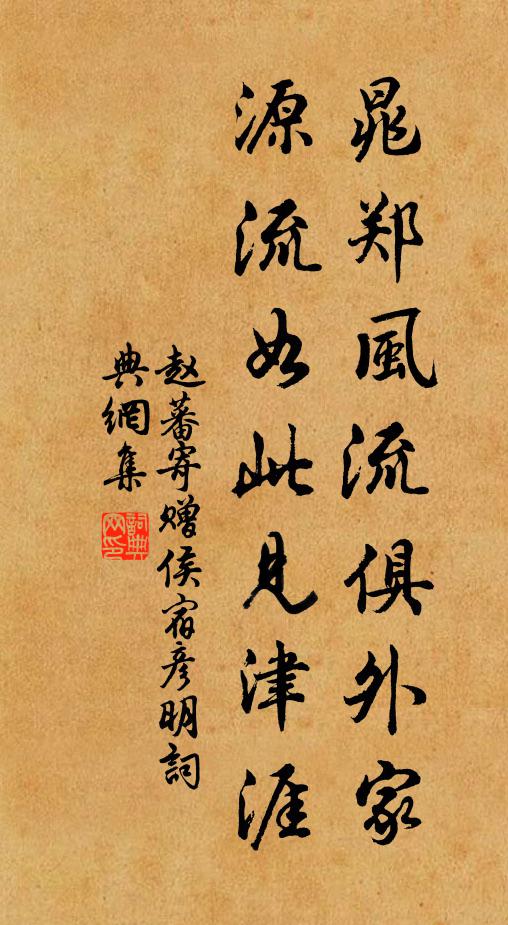 晁郑風流俱外家
源流如此見津涯
赵蕃寄赠侯宿彦明詞
典網集
詞典网印